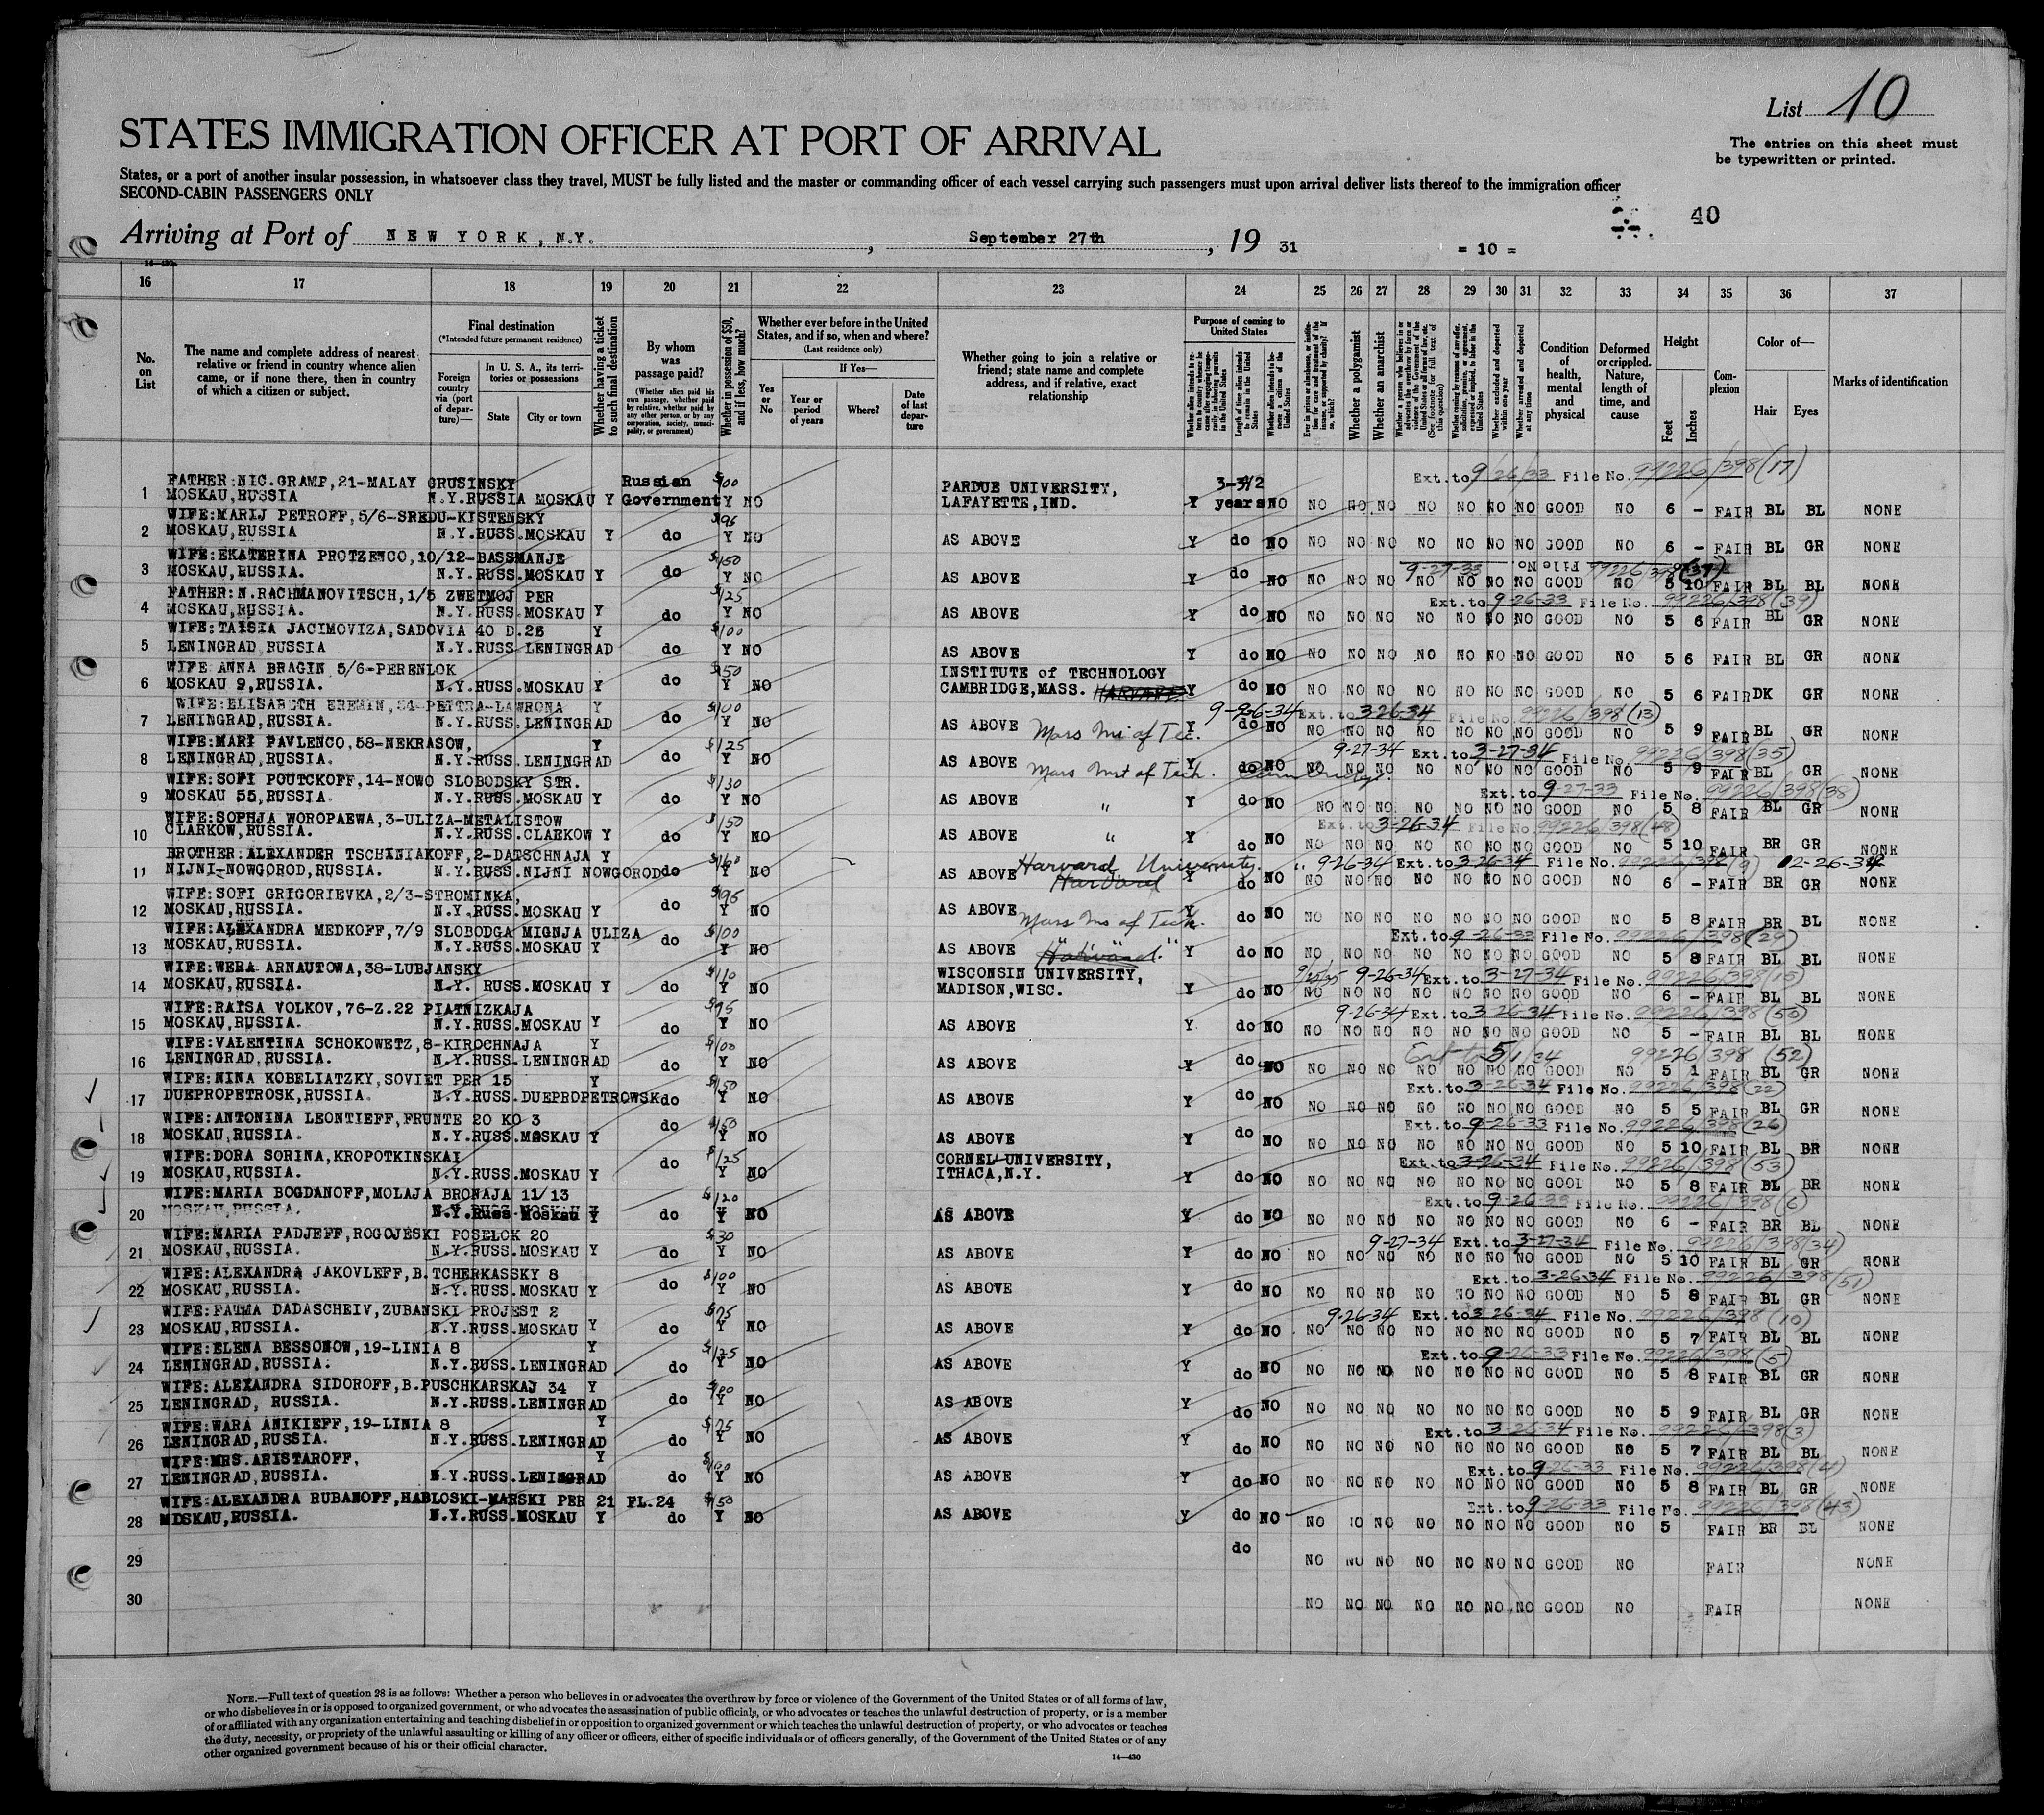 List 10
STATES IMMIGRATION OFFICER AT PORT OF ARRIVAL
The entries on this sheet must
be typewritten or printed.
States, or a port of another insular possession, in whatsoever class they travel, MUST be fully listed and the master or commanding officer of each vessel carrying such passengers must upon arrival deliver lists thereof to the immigration officer
SECOND-CABIN PASSENGERS ONLY
40
Arriving at Port of NEW YORK, N.Y. , September 27th , 19 31
= 10 =
16 17 18 19 20 21 22 23 24 25 26 27 28 29 30 31 32 33 34 35 36 37
No. on List
The name and complete address of nearest relative or friend in country whence alien came, or if none there, then in country of which a citizen or subject.
Final destination
(*Intended future permanent residence)
Foreign country via (port of departure)—
In U. S. A., its territories or possessions
State City or town
Whether having a ticket to such final destination
By whom was passage paid?
(Whether alien paid his own passage, whether paid by relative, whether paid by any other person, or by any corporation, society, municipality, or government)
Whether in possession of $50, and if less, how much?
Whether ever before in the United States, and if so, when and where?
(Last residence only)
Yes or No
If Yes—
Year or period of years
Where?
Date of last departure
Whether going to join a relative or friend; state name and complete address, and if relative, exact relationship
Purpose of coming to United States
Length of time alien intends to remain in the United States
Whether alien intends to become a citizen of the United States
Whether a polygamist
Whether an anarchist
Whether excluded and deported within one year
Whether arrested and deported at any time
Condition of health, mental and physical
Deformed or crippled. Nature, length of time, and cause
Height
Feet Inches
Complexion
Color of—
Hair Eyes
Marks of identification
Ext. to 9/26/33 File No. 99226/398 (17)
1 FATHER:NIC.GRAMP,21-MALAY GRUSINSKY
MOSKAU,RUSSIA N.Y.RUSSIA MOSKAU Y Russian Government $100 Y NO PARDUE UNIVERSITY, LAFAYETTE,IND. Y years NO NO NO NO NO NO NO NO GOOD NO 6 - FAIR BL BL NONE
2 WIFE:MARIJ PETROFF,5/6-SREDU-KISTENSKY
MOSKAU,RUSSIA N.Y.RUSS.MOSKAU Y do $96 Y NO AS ABOVE Y do NO NO NO NO NO NO NO NO GOOD NO 6 - FAIR BL GR NONE
9-27-33 File No. 99226/398 (37)
3 WIFE:EKATERINA PROTZENCO,10/12-BASSMANJE
MOSKAU,RUSSIA. N.Y.RUSS.MOSKAU Y do $150 Y NO AS ABOVE Y do NO NO NO NO NO NO NO NO GOOD NO 5 10 FAIR BL BL NONE
Ext. to 9-26-33 File No. 99226/398 (39)
4 FATHER:N.RACHMANOVITSCH,1/5 ZWETMOJ PER
MOSKAU,RUSSIA. N.Y.RUSS.MOSKAU Y do $125 Y NO AS ABOVE Y do NO NO NO NO NO NO NO NO GOOD NO 5 6 FAIR BL GR NONE
5 WIFE:TAISIA JACIMOVIZA,SADOVIA 40 D.25 Y
LENINGRAD RUSSIA N.Y.RUSS.LENINGRAD do $100 Y NO AS ABOVE Y do NO NO NO NO NO NO NO NO GOOD NO 5 6 FAIR BL GR NONE
6 WIFE ANNA BRAGIN 5/6-PERENLOK
MOSKAU 9,RUSSIA. N.Y.RUSS.MOSKAU Y do $50 Y NO INSTITUTE of TECHNOLOGY CAMBRIDGE,MASS. HARVARD Y do NO NO NO NO NO NO NO NO GOOD NO 5 6 FAIR DK GR NONE
9-26-34 Ext. to 3-26-34 File No. 99226/398 (13)
7 WIFE:ELISABETH EREMIN,54-PETTRA-LAWRONA Y
LENINGRAD,RUSSIA. N.Y.RUSS.LENINGRAD do $100 Y NO AS ABOVE Mass Ins of Tec. Y do NO NO NO NO NO NO NO NO GOOD NO 5 9 FAIR BL GR NONE
9-27-34 Ext. to 3-27-34 File No. 99226/398 (35)
8 WIFE:MARI PAVLENCO,58-NEKRASOW, Y
LENINGRAD,RUSSIA. N.Y.RUSS.LENINGRAD do $125 Y NO AS ABOVE Mass Inst of Tech. Cambridge. Y do NO NO NO NO NO NO NO NO GOOD NO 5 9 FAIR BL GR NONE
Ext. to 9-27-33 File No. 99226/398 (38)
9 WIFE:SOFI POUTCKOFF,14-NOWO SLOBODSKY STR.
MOSKAU 55,RUSSIA. N.Y.RUSS.MOSKAU Y do $130 Y NO AS ABOVE " Y do NO NO NO NO NO NO NO NO GOOD NO 5 8 FAIR BL GR NONE
Ext. to 3-26-34 File No. 99226/398 (48)
10 WIFE:SOPHJA WOROPAEWA,3-ULIZA-METALISTOW
CLARKOW,RUSSIA. N.Y.RUSS.CLARKOW Y do $150 Y NO AS ABOVE " Y do NO NO NO NO NO NO NO NO GOOD NO 5 10 FAIR BR GR NONE
9-26-34 Ext. to 3-26-34 File No. 99226/398 (9)
11 BROTHER:ALEXANDER TSCHINIAKOFF,2-DATSCHNAJA Y
NIJNI-NOWGOROD,RUSSIA. N.Y.RUSS.NIJNI NOWGOROD do $160 Y NO AS ABOVE Harvard University. Harvard Y do NO NO NO NO NO NO NO NO GOOD NO 6 - FAIR BR GR NONE
12 WIFE:SOFI GRIGORIEVKA,2/3-STROMINKA,
MOSKAU,RUSSIA. N.Y.RUSS.MOSKAU Y do $95 Y NO AS ABOVE Mass Ins of Tech. Y do NO NO NO NO NO NO NO NO GOOD NO 5 8 FAIR BR BL NONE
Ext. to 9-26-33 File No. 99226/398 (29)
13 WIFE:ALEXANDRA MEDKOFF,7/9 SLOBODGA MIGNJA ULIZA
MOSKAU,RUSSIA. N.Y.RUSS.MOSKAU Y do $100 Y NO AS ABOVE Harvard Y do NO NO NO NO NO NO NO NO GOOD NO 5 8 FAIR BL BL NONE
9-26-34 Ext. to 3-27-34 File No. 99226/398 (15)
14 WIFE:WERA ARNAUTOWA,38-LUBJANSKY
MOSKAU,RUSSIA. N.Y. RUSS.MOSKAU Y do $110 Y NO WISCONSIN UNIVERSITY, MADISON,WISC. Y do NO NO NO NO NO NO NO NO GOOD NO 6 - FAIR BL BL NONE
9-26-34 Ext. to 3-26-34 File No. 99226/398 (50)
15 WIFE:RAISA VOLKOV,76-Z.22 PIATNIZKAJA
MOSKAU,RUSSIA. N.Y.RUSS.MOSKAU Y do $95 Y NO AS ABOVE Y do NO NO NO NO NO NO NO NO GOOD NO 5 - FAIR BL BL NONE
Ext to 5/1/34 99226/398 (52)
16 WIFE:VALENTINA SCHOKOWETZ,8-KIROCHNAJA Y
LENINGRAD,RUSSIA. N.Y.RUSS.LENINGRAD do $100 Y NO AS ABOVE Y do NO NO NO NO NO NO NO NO GOOD NO 5 1 FAIR BL GR NONE
Ext. to 3-26-34 File No. 99226/398 (22)
17 WIFE:NINA KOBELIATZKY,SOVIET PER 15 Y
DUEPROPETROSK,RUSSIA. N.Y.RUSS.DUEPROPETROWSK do $150 Y NO AS ABOVE Y do NO NO NO NO NO NO NO NO GOOD NO 5 5 FAIR BL GR NONE
Ext. to 9-26-33 File No. 99226/398 (26)
18 WIFE:ANTONINA LEONTIEFF,FRUNTE 20 KO 3
MOSKAU,RUSSIA. N.Y.RUSS.MOSKAU Y do $150 Y NO AS ABOVE Y do NO NO NO NO NO NO NO NO GOOD NO 5 10 FAIR BL BR NONE
Ext. to 3-26-34 File No. 99226/398 (53)
19 WIFE:DORA SORINA,KROPOTKINSKAI
MOSKAU,RUSSIA. N.Y.RUSS.MOSKAU Y do $125 Y NO CORNEL UNIVERSITY, ITHACA,N.Y. Y do NO NO NO NO NO NO NO NO GOOD NO 5 8 FAIR BL BR NONE
Ext. to 9-26-33 File No. 99226/398 (6)
20 WIFE:MARIA BOGDANOFF,MOLAJA BRONAJA 11/13
MOSKAU,RUSSIA. N.Y.Russ Moskau Y do $120 Y NO AS ABOVE Y do NO NO NO NO NO NO NO NO GOOD NO 6 - FAIR BR BL NONE
9-27-34 Ext. to 3-27-34 File No. 99226/398 (34)
21 WIFE:MARIA PADJEFF,ROGOJESKI POSELOK 20
MOSKAU,RUSSIA. N.Y.RUSS.MOSKAU Y do $30 Y NO AS ABOVE Y do NO NO NO NO NO NO NO NO GOOD NO 5 10 FAIR BL GR NONE
Ext. to 3-26-34 File No. 99226/398 (51)
22 WIFE:ALEXANDRA JAKOVLEFF,B.TCHERKASSKY 8
MOSKAU,RUSSIA. N.Y.RUSS.MOSKAU Y do $100 Y NO AS ABOVE Y do NO NO NO NO NO NO NO NO GOOD NO 5 8 FAIR BL GR NONE
9-26-34 Ext. to 3-26-34 File No. 99226/398 (10)
23 WIFE:FATMA DADASCHEIV,ZUBANSKI PROJEST 2
MOSKAU,RUSSIA. N.Y.RUSS.MOSKAU Y do $75 Y NO AS ABOVE Y do NO NO NO NO NO NO NO NO GOOD NO 5 7 FAIR BL BL NONE
Ext. to 9-26-33 File No. 99226/398 (5)
24 WIFE:ELENA BESSONOW,19-LINIA 8 Y
LENINGRAD,RUSSIA. N.Y.RUSS.LENINGRAD do $125 Y NO AS ABOVE Y do NO NO NO NO NO NO NO NO GOOD NO 5 8 FAIR BL GR NONE
25 WIFE:ALEXANDRA SIDOROFF,B.PUSCHKARSKAJ 34 Y
LENINGRAD, RUSSIA. N.Y.RUSS.LENINGRAD do $100 Y NO AS ABOVE Y do NO NO NO NO NO NO NO NO GOOD NO 5 9 FAIR BL GR NONE
Ext. to 3-26-34 File No. 99226/398 (3)
26 WIFE:WARA ANIKIEFF,19-LINIA 8 Y
LENINGRAD,RUSSIA. N.Y.RUSS.LENINGRAD do $75 Y NO AS ABOVE Y do NO NO NO NO NO NO NO NO GOOD NO 5 7 FAIR BL BL NONE
Ext. to 9-26-33 File No. 99226/398 (4)
27 WIFE:MRS.ARISTAROFF, Y
LENINGRAD,RUSSIA. N.Y.RUSS.LENINGRAD do $100 Y NO AS ABOVE Y do NO NO NO NO NO NO NO NO GOOD NO 5 8 FAIR BL GR NONE
Ext. to 9-26-33 File No. 99226/398 (43)
28 WIFE:ALEXANDRA RUBANOFF,HABLOSKI-MARSKI PER 21 FL.24
MOSKAU,RUSSIA. N.Y.RUSS.MOSKAU Y do $150 Y NO AS ABOVE Y do NO NO NO NO NO NO NO NO GOOD NO 5 FAIR BR BL NONE
29 do NO NO NO NO NO NO NO GOOD NO FAIR NONE
30 NO NO NO NO NO NO NO GOOD NO FAIR NONE
NOTE.—Full text of question 28 is as follows: Whether a person who believes in or advocates the overthrow by force or violence of the Government of the United States or of all forms of law,
or who disbelieves in or is opposed to organized government, or who advocates the assassination of public officials, or who advocates or teaches the unlawful destruction of property, or is a member
of or affiliated with any organization entertaining and teaching disbelief in or opposition to organized government or which teaches the unlawful destruction of property, or who advocates or teaches
the duty, necessity, or propriety of the unlawful assaulting or killing of any officer or officers, either of specific individuals or of officers generally, of the Government of the United States or of any
other organized government because of his or their official character.
14—430